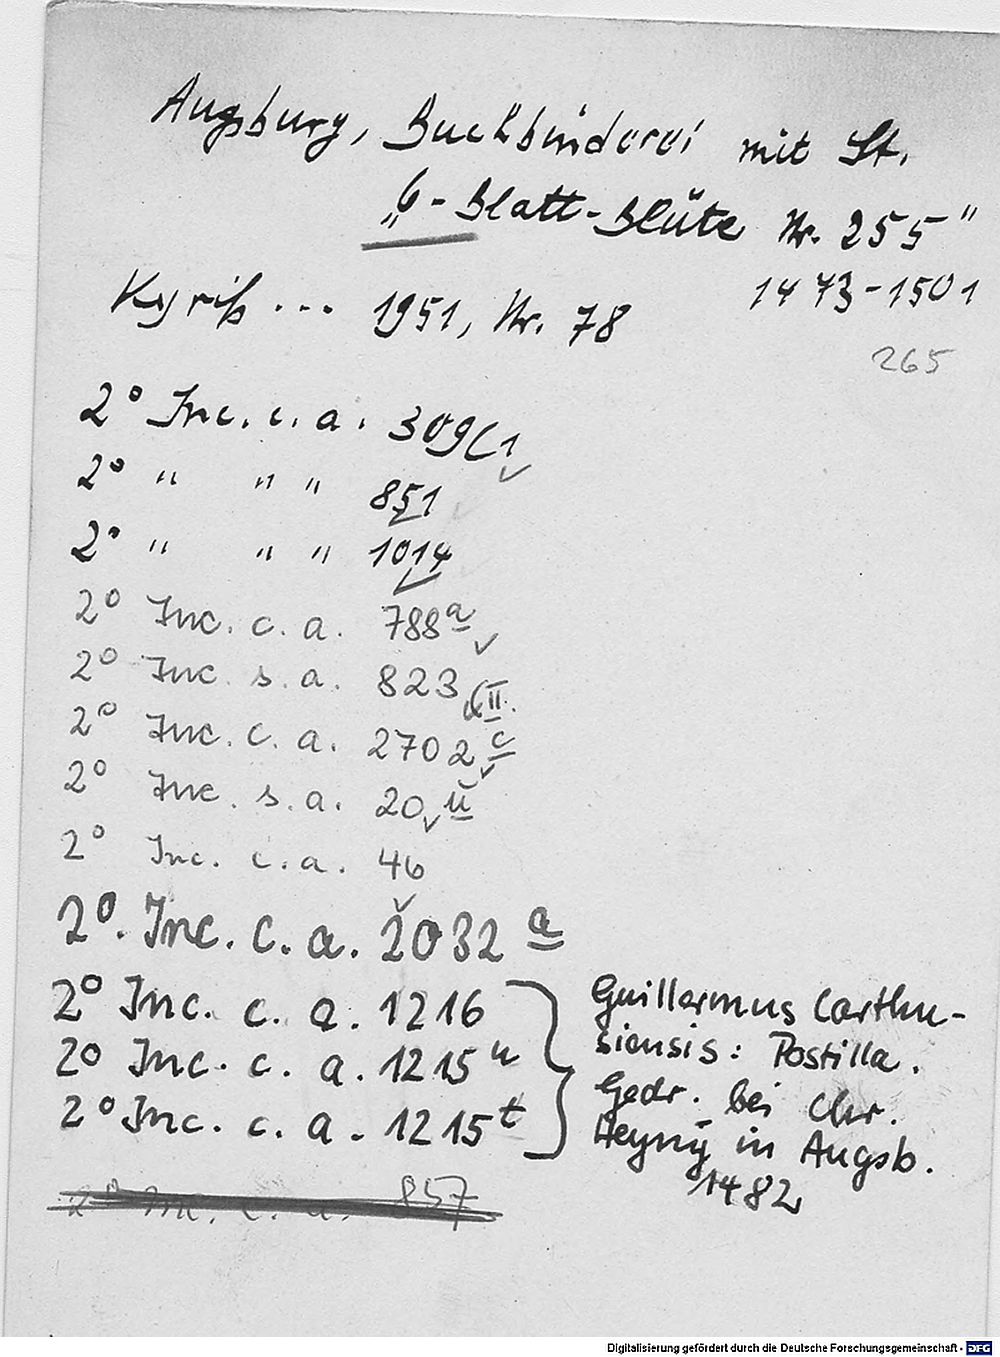 Augsburg, Buchbinderei mit St.
„6-Blatt-Blüte Nr. 255"
1473-1501
Kyriß ... 1951, Nr. 78
265
2° Inc. c. a. 309(1
2° " " " 851
2° " " " 1014
2° Inc. c. a. 788a
2° Inc s. a. 823, II.
2° Inc. c. a. 2702 c
2° Inc. s. a. 20
2° Inc. c. a. 46
2°. Inc. c. a. 2032 a
2° Inc. c. a. 1216
2° Inc. c. a. 1215u
2° Inc. c. a. 1215t
Guillermus Carthu-
siensis: Postilla.
Gedr. bei Chr.
Heyny in Augsb.
1482
2° Inc. c. a. 857
Digitalisierung gefördert durch die Deutsche Forschungsgemeinschaft - DFG